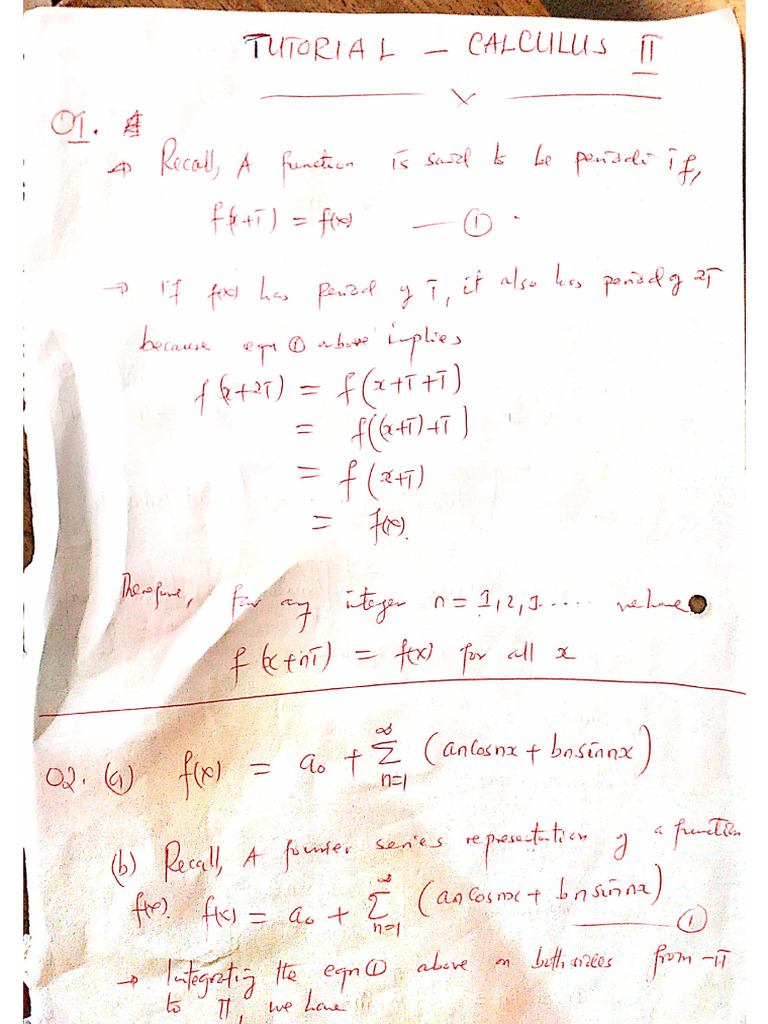 TUTORIAL - CALCULUS II
Q1.
→ Recall, A function is said to be periodic if,
f(x+T) = f(x) — ①
→ If f(x) has period of T, it also has period of 2T
because eqn ① above implies
f(x+2T) = f(x+T+T)
= f((x+T)+T)
= f(x+T)
= f(x).
Therefore, for any integer n = 1,2,3..... we have
f(x+nT) = f(x) for all x
Q2. (a) f(x) = a₀ + ∞Σn=1 (an cos nx + bn sin nx)
(b) Recall, A fourier series representation of a function
f(x). f(x) = a₀ + ∞Σn=1 (an cos nx + bn sin nx) — ①
→ Integrating the eqn ① above on both sizes from -π
to π, we have